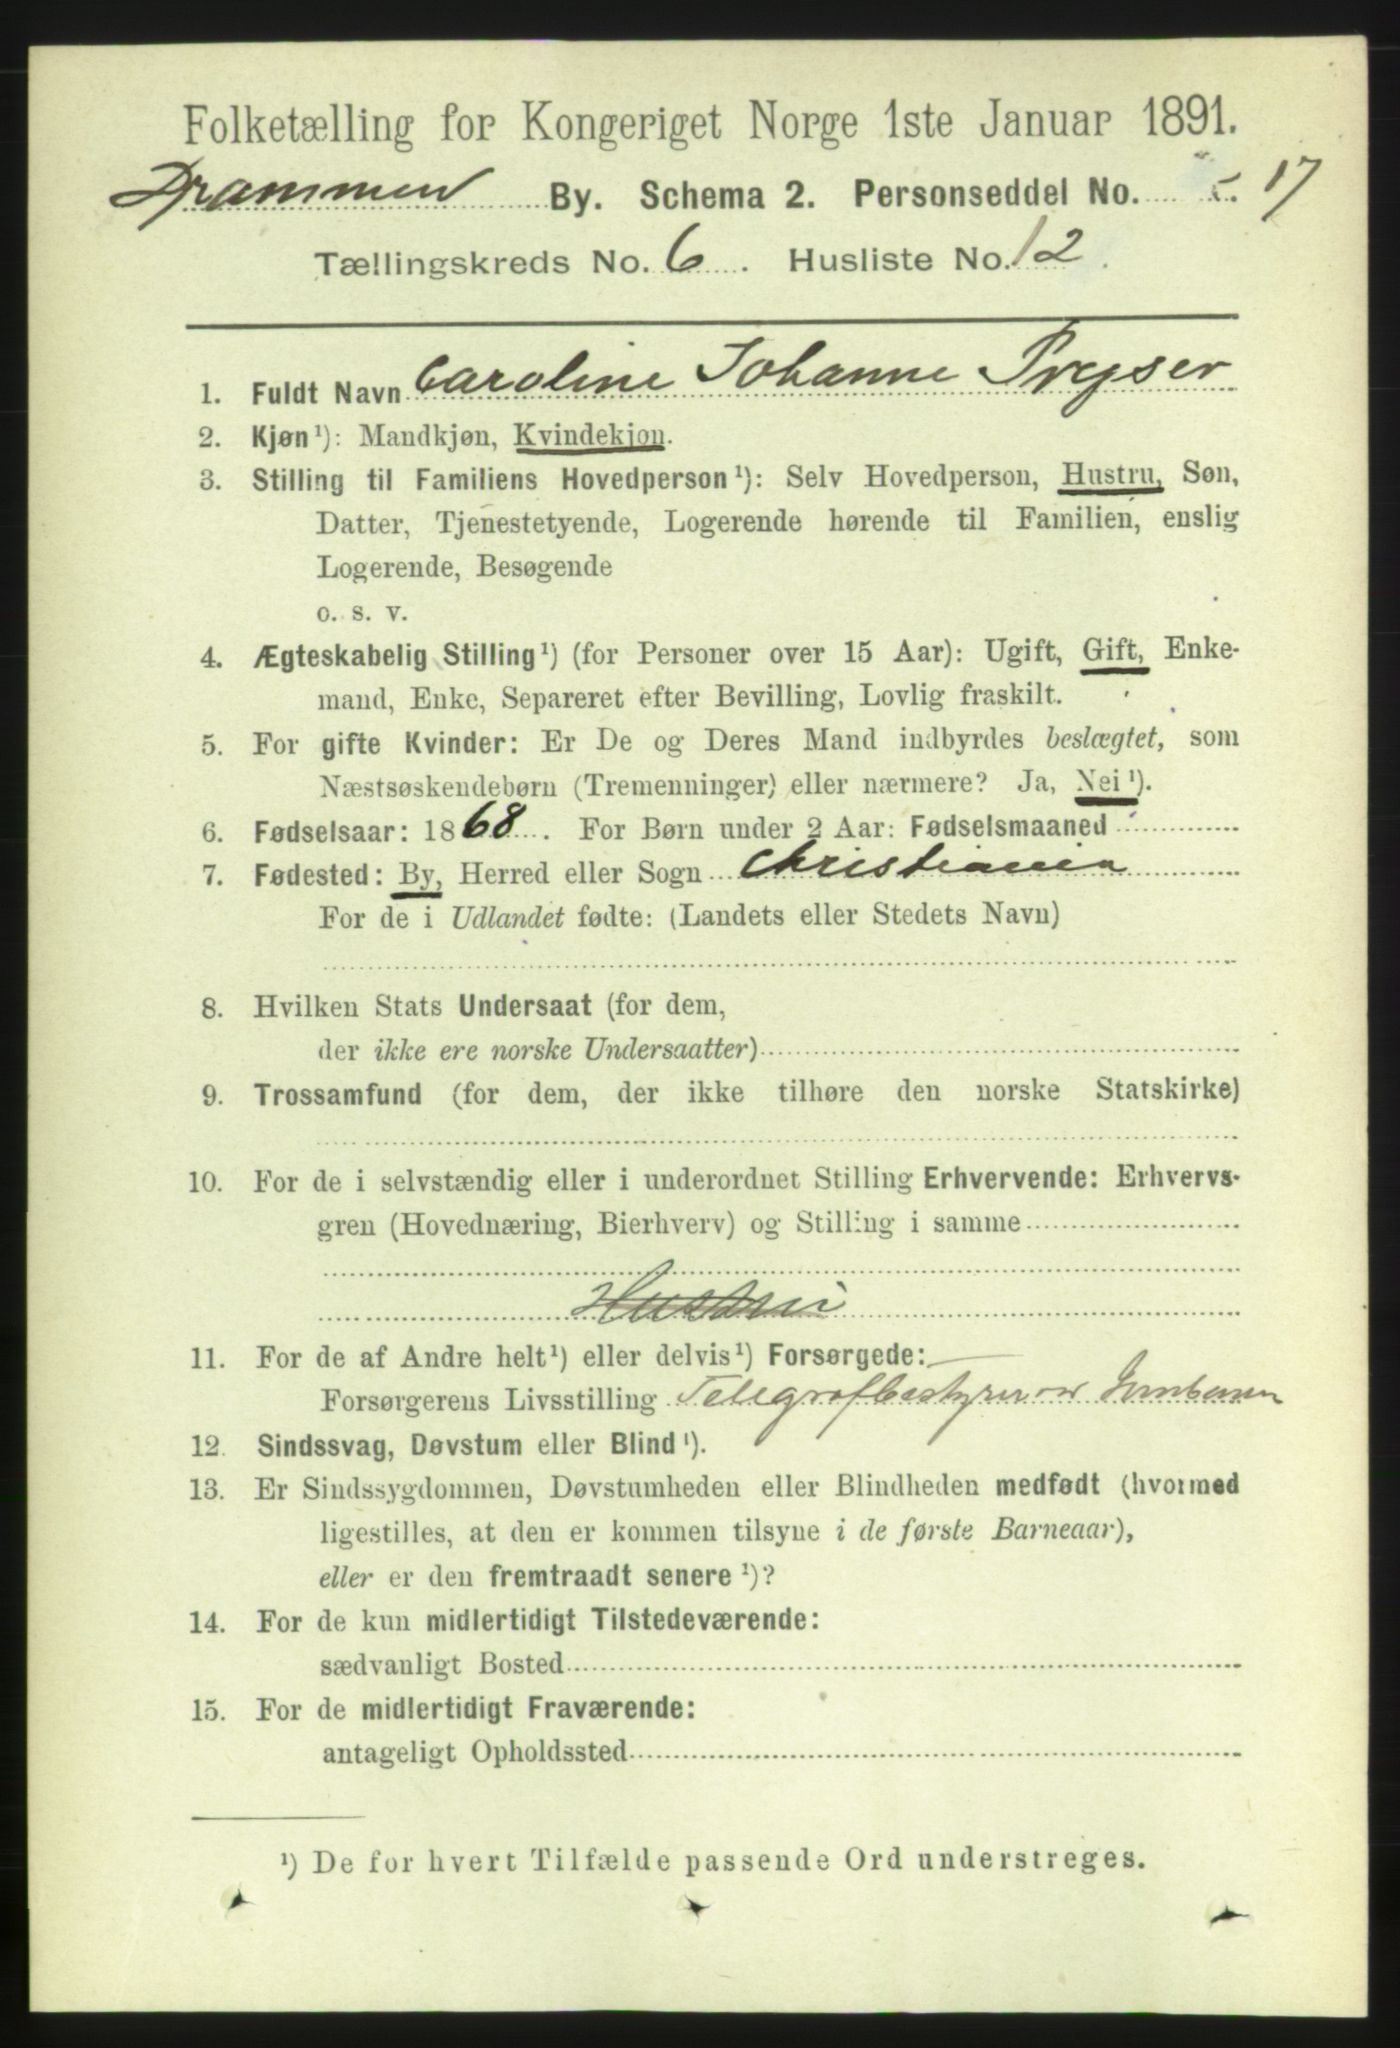 Folketælling for Kongeriget Norge 1ste Januar 1891.
Drammen By. Schema 2. Personseddel No. 17
Tællingskreds No. 6. Husliste No. 12.
1. Fuldt Navn Caroline Johanne Prejser
2. Kjøn¹): Mandkjøn, Kvindekjøn.
3. Stilling til Familiens Hovedperson¹): Selv Hovedperson, Hustru, Søn,
Datter, Tjenestetyende, Logerende hørende til Familien, enslig
Logerende, Besøgende
o. s. v.
4. Ægteskabelig Stilling¹) (for Personer over 15 Aar): Ugift, Gift, Enke-
mand, Enke, Separeret efter Bevilling, Lovlig fraskilt.
5. For gifte Kvinder: Er De og Deres Mand indbyrdes beslægtet, som
Næstsøskendebørn (Tremenninger) eller nærmere? Ja, Nei¹).
6. Fødselsaar: 1868. For Børn under 2 Aar: Fødselsmaaned
7. Fødested: By, Herred eller Sogn Christiania
For de i Udlandet fødte: (Landets eller Stedets Navn)
8. Hvilken Stats Undersaat (for dem,
der ikke ere norske Undersaatter)
9. Trossamfund (for dem, der ikke tilhøre den norske Statskirke)
10. For de i selvstændig eller i underordnet Stilling Erhvervende: Erhvervs-
gren (Hovednæring, Bierhverv) og Stilling i samme
Hustru
11. For de af Andre helt¹) eller delvis¹) Forsørgede:
Forsørgerens Livsstilling Telegrafbestyrer v. Jernbanen
12. Sindssvag, Døvstum eller Blind¹).
13. Er Sindssygdommen, Døvstumheden eller Blindheden medfødt (hvormed
ligestilles, at den er kommen tilsyne i de første Barneaar),
eller er den fremtraadt senere¹)?
14. For de kun midlertidigt Tilstedeværende:
sædvanligt Bosted
15. For de midlertidigt Fraværende:
antageligt Opholdssted
¹) De for hvert Tilfælde passende Ord understreges.